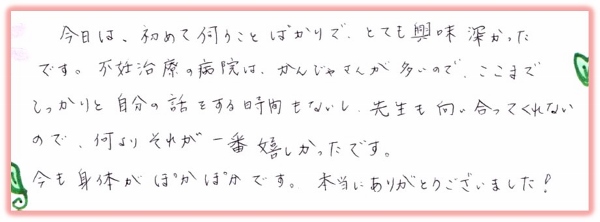 今日は、初めて伺うことばかりで、とても興味深かった
です。不妊治療の病院は、かんじゃさんが多いので、ここまで
しっかりと自分の話をする時間もないし、先生も向い合ってくれない
ので、何よりそれが一番嬉しかったです。
今も身体がぽかぽかです。本当にありがとうございました!